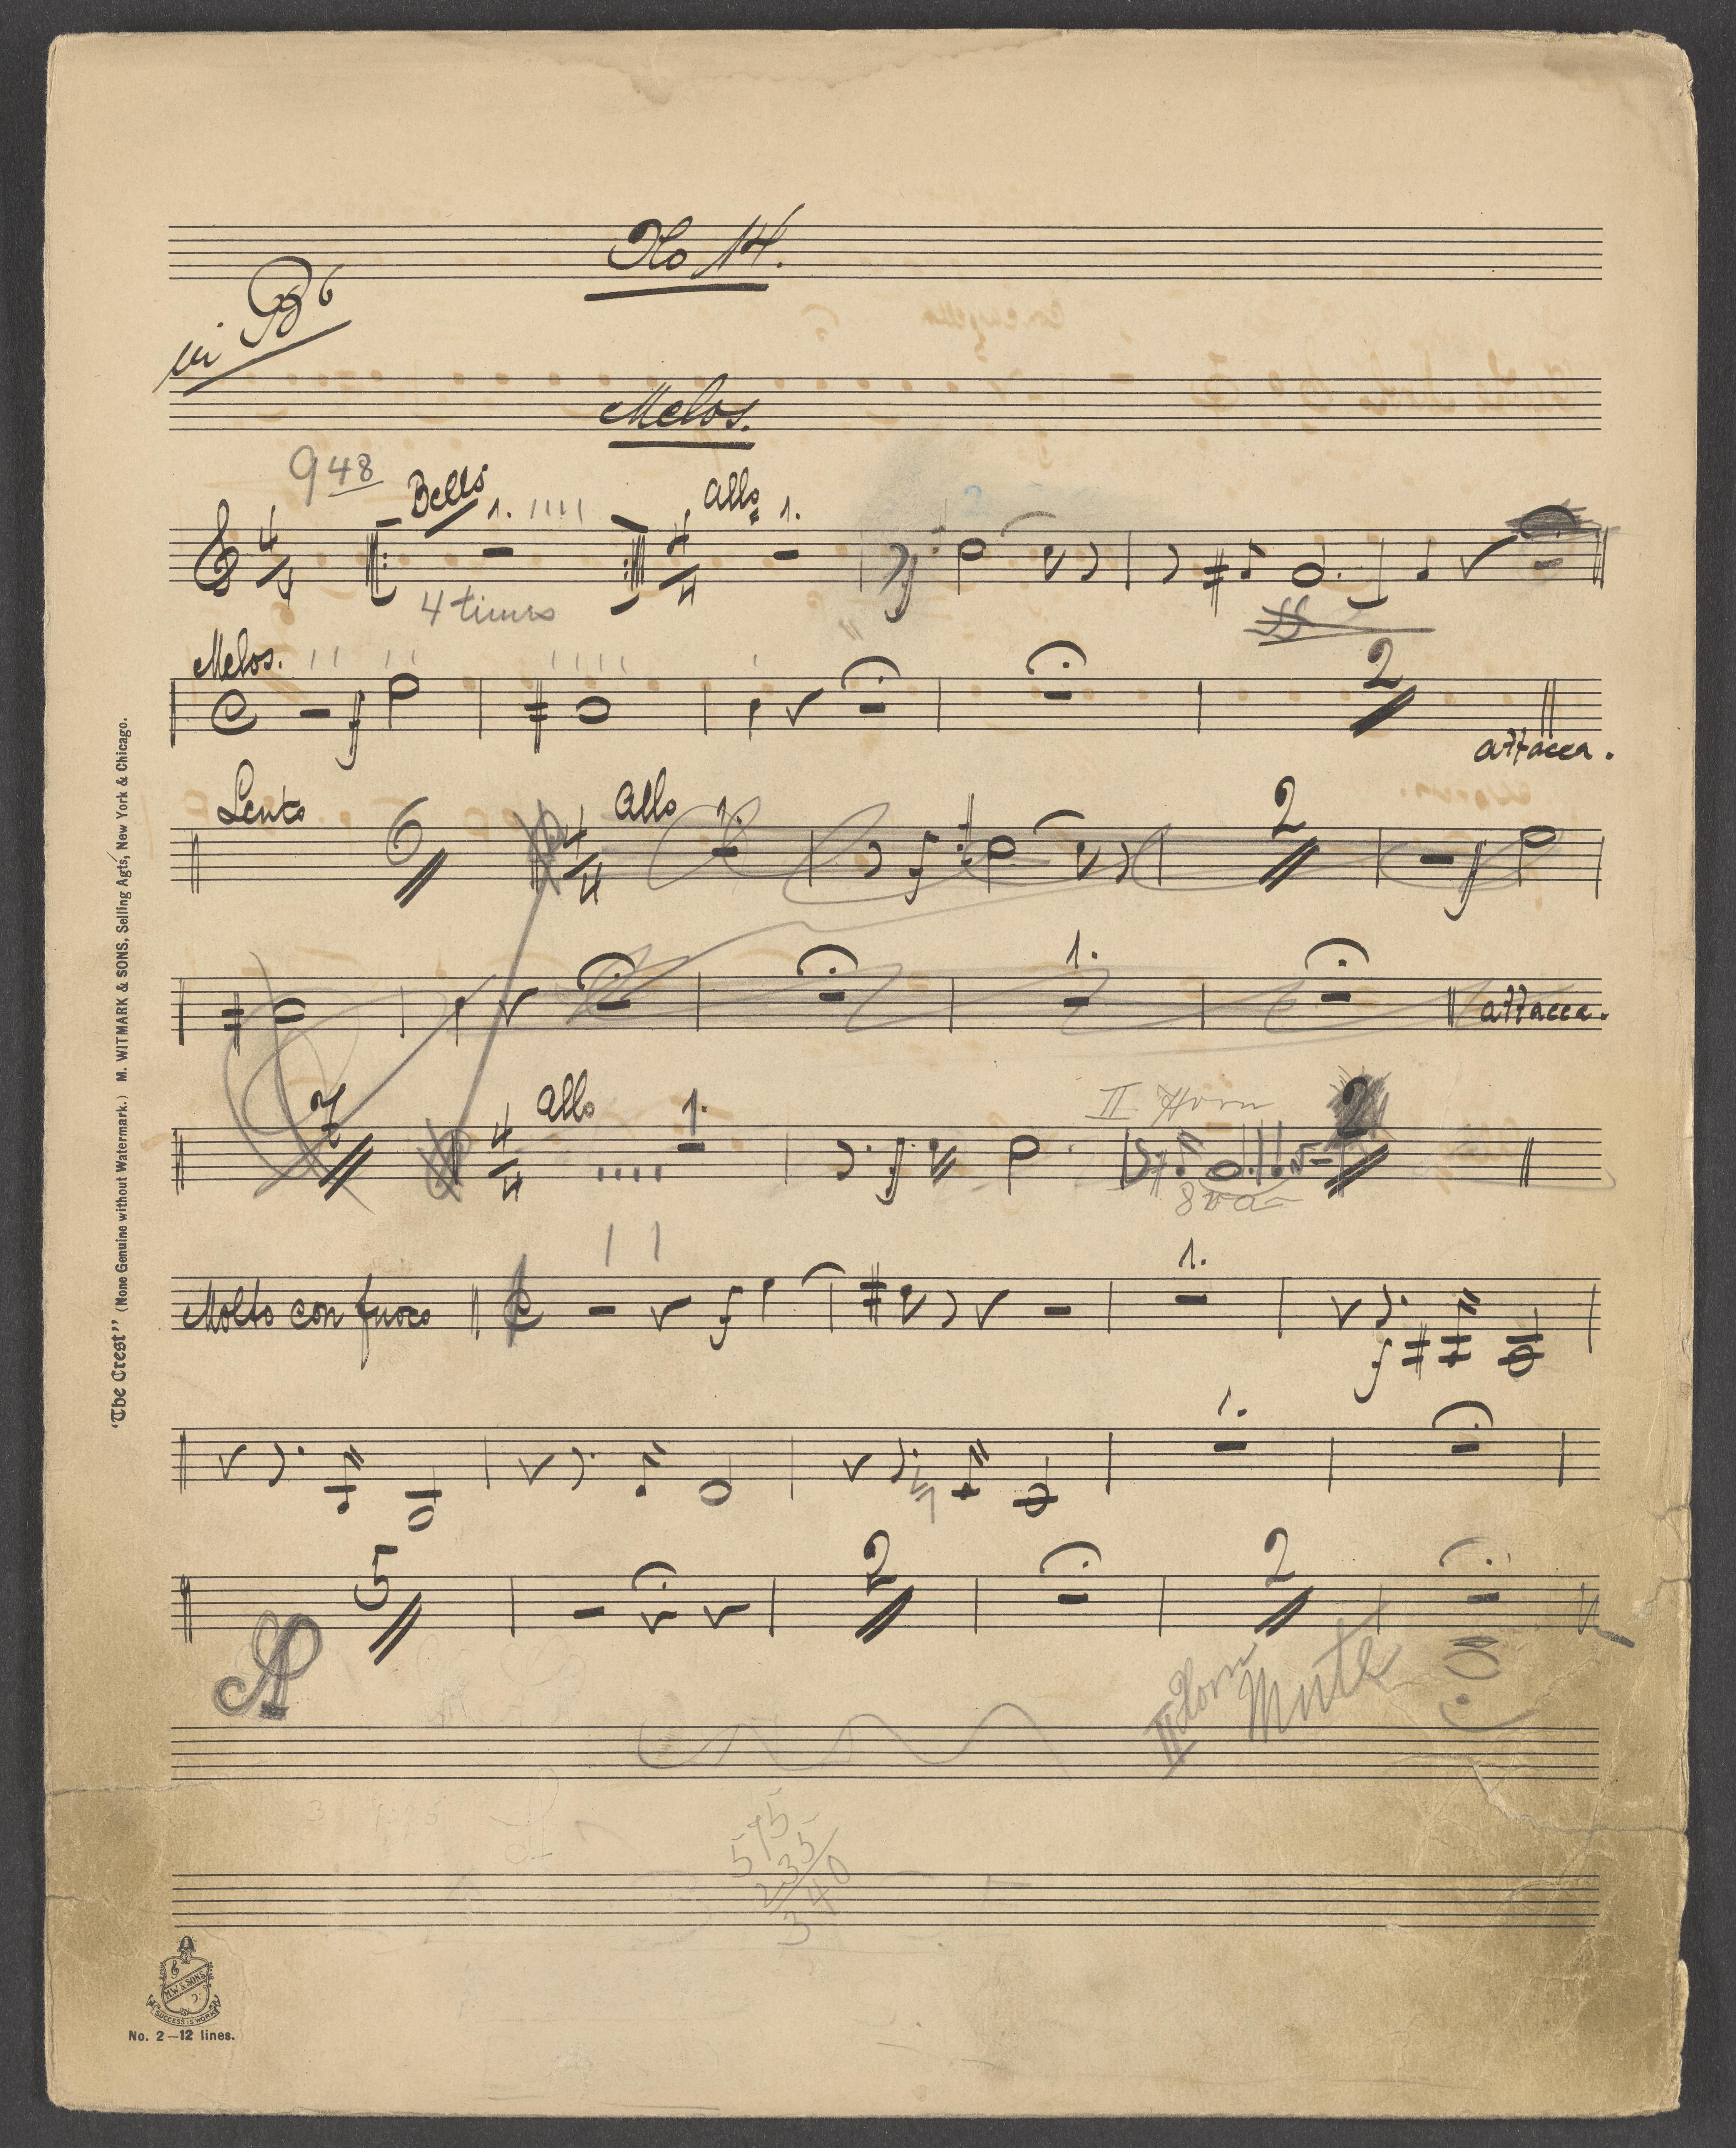 No 14.
in B♭
Melos.
948
Bells 1. Allo 1.
4/4 4/4
4 times
Melos.
2
attacca.
Lento 6 4/4 Allo 1. 2
1.
attacca.
7 4/4 Allo 1. II Horn 2
8va
Molto con fuoco 1.
f f
1.
5 2 2
A
II Horn Mute
575
235
340
"The Crest" (None Genuine without Watermark.) M. WITMARK & SONS, Selling Agts, New York & Chicago.
M.W. & SONS
SUCCESS IS WORK
No. 2–12 lines.